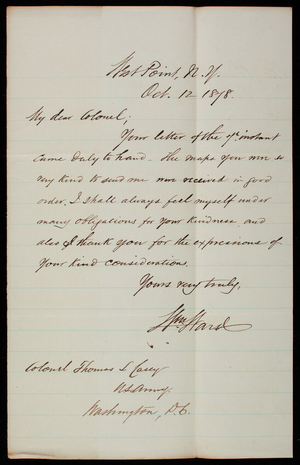 West Point, N.Y.
Oct. 12 1878.
My dear Colonel;
Your letter of the 7th instant
came duly to hand. The maps you were so
very kind to send me were received in good
order. I shall always feel myself under
many obligations for your kindness and
also I thank you for the expressions of
your kind considerations.
Yours very truly,
Wm Ward
Colonel Thomas L Casey
US Army.
Washington, D.C.